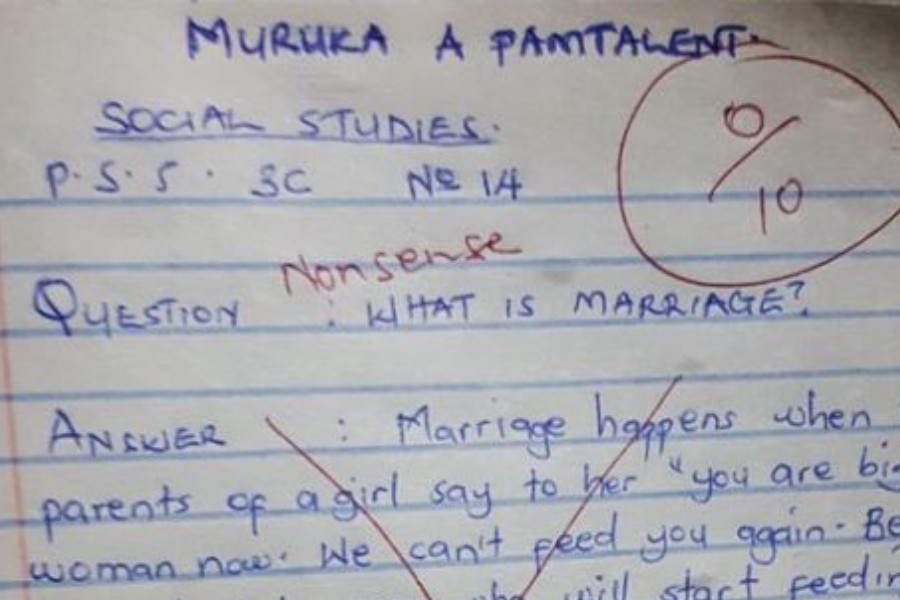 MURUKA A PAMTALENT.
SOCIAL STUDIES.
0/10
P.S.S. 3C No 14
Nonsense
QUESTION : WHAT IS MARRIAGE?
ANSWER : Marriage happens when
parents of a girl say to her "you are
woman now. We can't feed you again.
will start